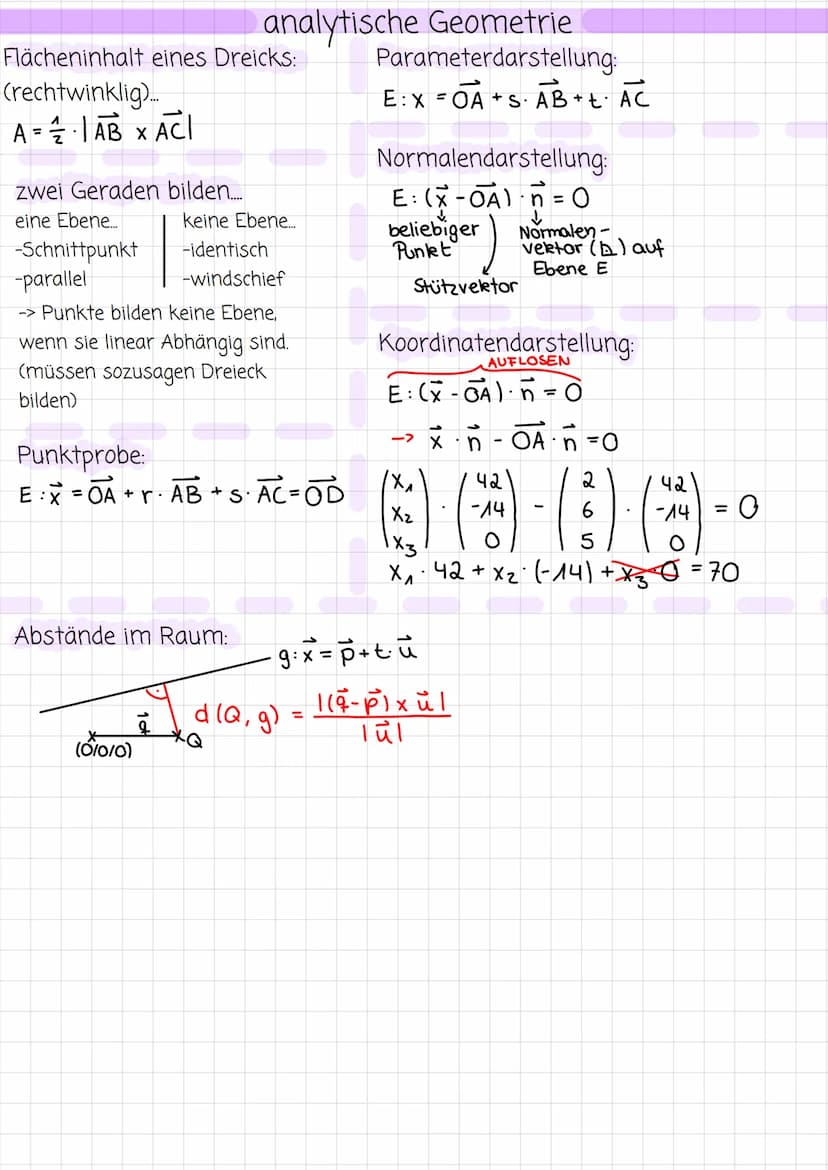 analytische Geometrie
Flächeninhalt eines Dreicks:
(rechtwinklig)...
A = 1/2 · |AB⃗ x AC⃗|
zwei Geraden bilden....
eine Ebene...
-Schnittpunkt
-parallel
keine Ebene...
-identisch
-windschief
-> Punkte bilden keine Ebene,
wenn sie linear Abhängig sind.
(müssen sozusagen Dreieck
bilden)
Punktprobe:
E : x⃗ = OA⃗ + r · AB⃗ + s · AC⃗ = OD⃗
Parameterdarstellung:
E : x = OA⃗ + s · AB⃗ + t · AC⃗
Normalendarstellung:
E : (x⃗ - OA⃗) · n⃗ = 0
beliebiger
Punkt
Stützvektor
Normalen-
vektor (⊾) auf
Ebene E
Koordinatendarstellung:
AUFLÖSEN
E : (x⃗ - OA⃗) · n⃗ = 0
-> x⃗ · n⃗ - OA⃗ · n⃗ = 0
(x₁ x₂ x₃) · (42 -14 0) - (2 6 5) · (42 -14 0) = 0
x₁ · 42 + x₂ · (-14) + x₃ · 0 = 70
Abstände im Raum:
g : x⃗ = p⃗ + t · u⃗
d(Q, g) = |(q⃗ - p⃗) x u⃗| / |u⃗|
q⃗
Q
(0/0/0)